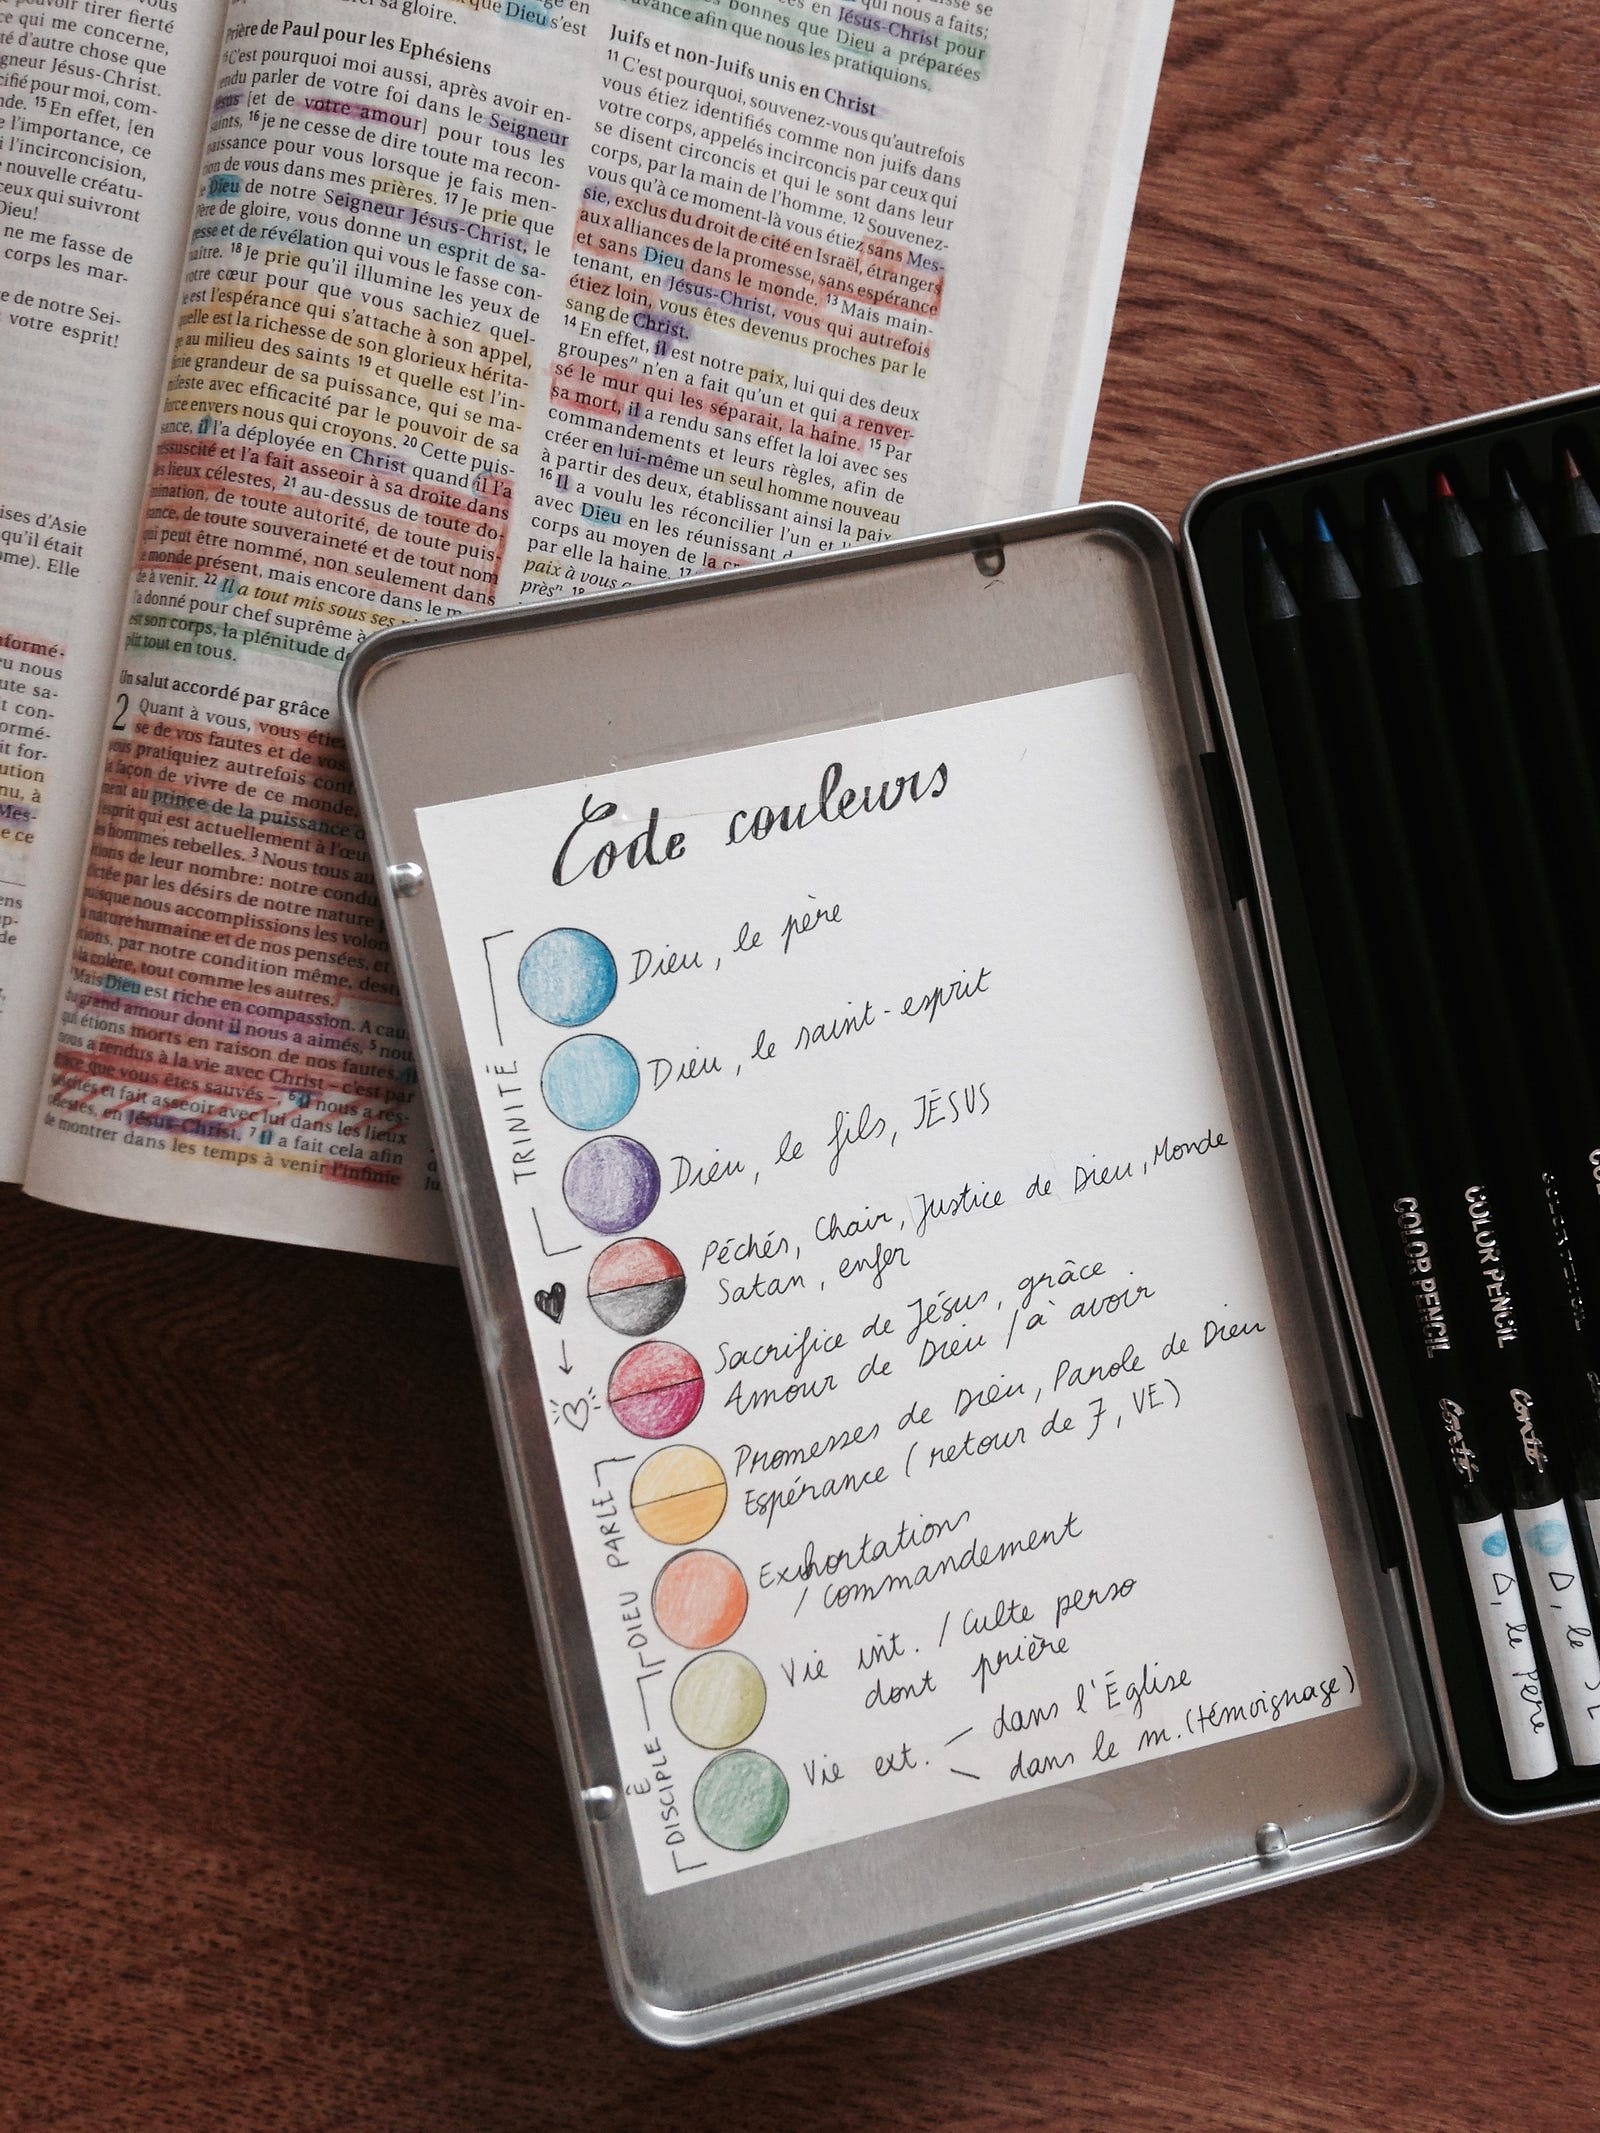 pouvoir tirer fierté
ce qui me concerne,
té d'autre chose que
gneur Jésus-Christ.
cifié pour moi, com-
nde. 15 En effet, [en
l'importance, ce
l'incirconcision,
nouvelle créatu-
ceux qui suivront
Dieu!
ne me fasse de
corps les mar-
e de notre Sei-
votre esprit!
ises d'Asie
qu'il était
ome). Elle
sa gloire.
que Dieu s'est
Prière de Paul pour les Ephésiens
15 C'est pourquoi moi aussi, après avoir en-
endu parler de votre foi dans le Seigneur
Jésus [et de votre amour] pour tous les
saints, 16 je ne cesse de dire toute ma recon-
naissance pour vous lorsque je fais men-
tion de vous dans mes prières. 17 Je prie que
le Dieu de notre Seigneur Jésus-Christ, le
Père de gloire, vous donne un esprit de sa-
gesse et de révélation qui vous le fasse con-
naître. 18 Je prie qu'il illumine les yeux de
votre cœur pour que vous sachiez quel-
le est l'espérance qui s'attache à son appel,
quelle est la richesse de son glorieux hérita-
ge au milieu des saints 19 et quelle est l'in-
finie grandeur de sa puissance, qui se ma-
nifeste avec efficacité par le pouvoir de sa
force envers nous qui croyons. 20 Cette puis-
sance, il l'a déployée en Christ quand il l'a
ressuscité et l'a fait asseoir à sa droite dans
les lieux célestes, 21 au-dessus de toute do-
mination, de toute autorité, de toute puis-
sance, de toute souveraineté et de tout nom
qui peut être nommé, non seulement dans
le monde présent, mais encore dans le m
de à venir. 22 Il a tout mis sous ses
l'a donné pour chef suprême à
est son corps, la plénitude de
plit tout en tous.
Un salut accordé par grâce
2 Quant à vous, vous étie
se de vos fautes et de vos
vous pratiquiez autrefois conf
la façon de vivre de ce monde,
ment au prince de la puissance d
esprit qui est actuellement à l'œu
les hommes rebelles. 3 Nous tous au
tions de leur nombre: notre condu
dictée par les désirs de notre nature
puisque nous accomplissions les volon
a nature humaine et de nos pensées, et
tions, par notre condition même, desti
à la colère, tout comme les autres.
Mais Dieu est riche en compassion. A cau
du grand amour dont il nous a aimés, 5 nou
qui étions morts en raison de nos fautes, il
nous a rendus à la vie avec Christ – c'est par
grâce que vous êtes sauvés –, 6 il nous a res-
suscités et fait asseoir avec lui dans les lieux
célestes, en Jésus-Christ. 7 Il a fait cela afin
de montrer dans les temps à venir l'infinie
en Jésus-Christ pour
bonnes que Dieu a préparées
avance afin que nous les pratiquions.
Juifs et non-Juifs unis en Christ
11 C'est pourquoi, souvenez-vous qu'autrefois
vous étiez identifiés comme non juifs dans
votre corps, appelés incirconcis par ceux qui
se disent circoncis et qui le sont dans leur
corps, par la main de l'homme. 12 Souvenez-
vous qu'à ce moment-là vous étiez sans Mes-
sie, exclus du droit de cité en Israël, étrangers
aux alliances de la promesse, sans espérance
et sans Dieu dans le monde. 13 Mais main-
tenant, en Jésus-Christ, vous qui autrefois
étiez loin, vous êtes devenus proches par le
sang de Christ.
14 En effet, il est notre paix, lui qui des deux
groupes" n'en a fait qu'un et qui a renver-
sé le mur qui les séparait, la haine. 15 Par
sa mort, il a rendu sans effet la loi avec ses
commandements et leurs règles, afin de
créer en lui-même un seul homme nouveau
à partir des deux, établissant ainsi la paix,
16 Il a voulu les réconcilier l'un et l'
avec Dieu en les réunissant
corps au moyen de la cr
par elle la haine. 17
paix à vous
près" 18
Code couleurs
TRINITÉ
Dieu, le père
Dieu, le saint-esprit
Dieu, le fils, JÉSUS
Péchés, Chair, Justice de Dieu, Monde
Satan, enfer
Sacrifice de Jésus, grâce
Amour de Dieu / à avoir
DIEU PARLE
Promesses de Dieu, Parole de Dieu
Espérance (retour de J, VE)
Exhortations
/ commandement
Ê DISCIPLE
Vie int. / Culte perso
dont prière
Vie ext. – dans l'Église
– dans le m. (témoignage)
COLOR PENCIL
Conté
COLOR PENCIL
Conté
D, le Père
D, le